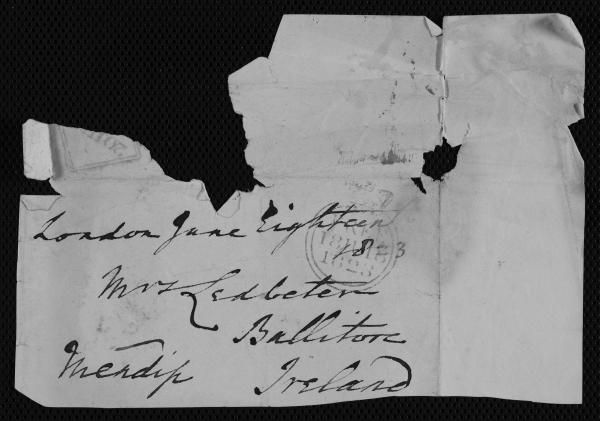 London June Eighteen
1823
Mrs Ledbeter
Ballitore
Mendip Ireland